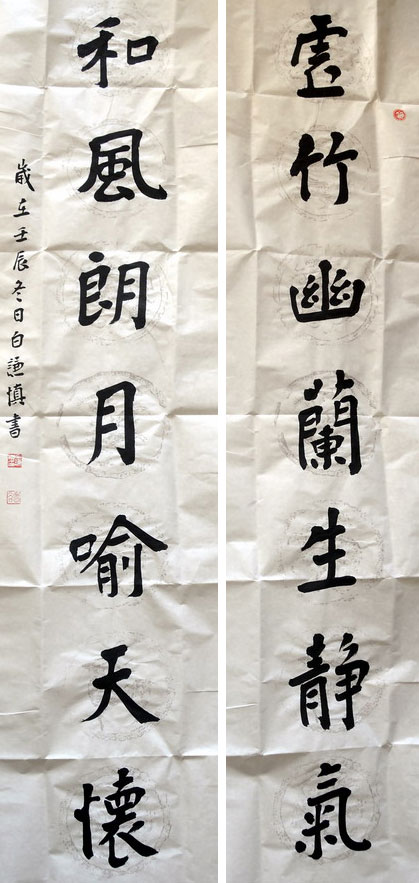 虚竹幽蘭生靜氣
和風朗月喻天懷
歲在壬辰冬日白謙慎書